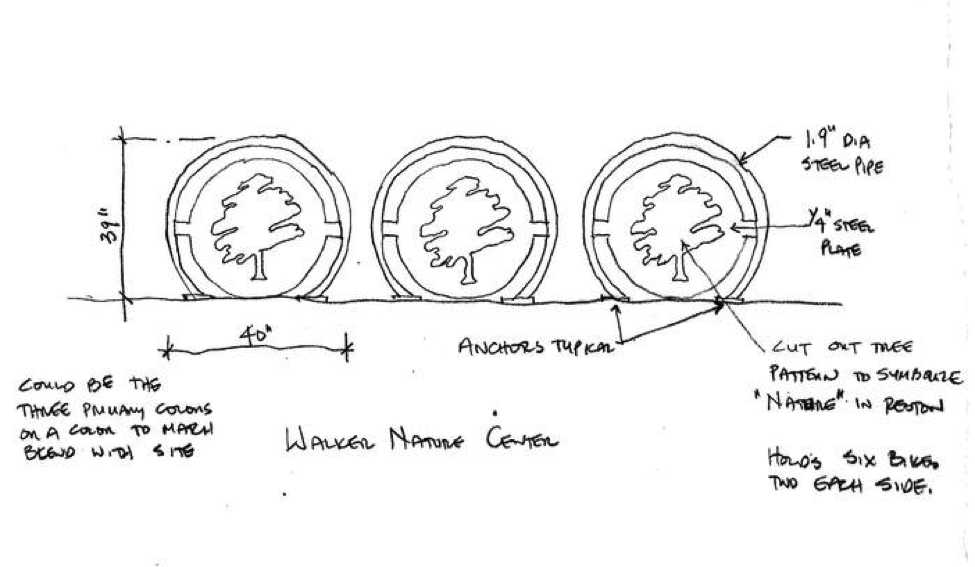 1.9" DIA
STEEL PIPE
39"
1/4" STEEL
PLATE
40"
ANCHORS TYPICAL
CUT OUT TREE
PATTERN TO SYMBOLIZE
"NATURE" IN RESTON
COULD BE THE
THREE PRIMARY COLORS
OR A COLOR TO MATCH
BLEND WITH SITE
WALKER NATURE CENTER
HOLDS SIX BIKES
TWO EACH SIDE.